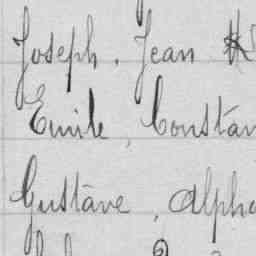 Joseph. Jean
Emile, Constan
Gustave, Alpho